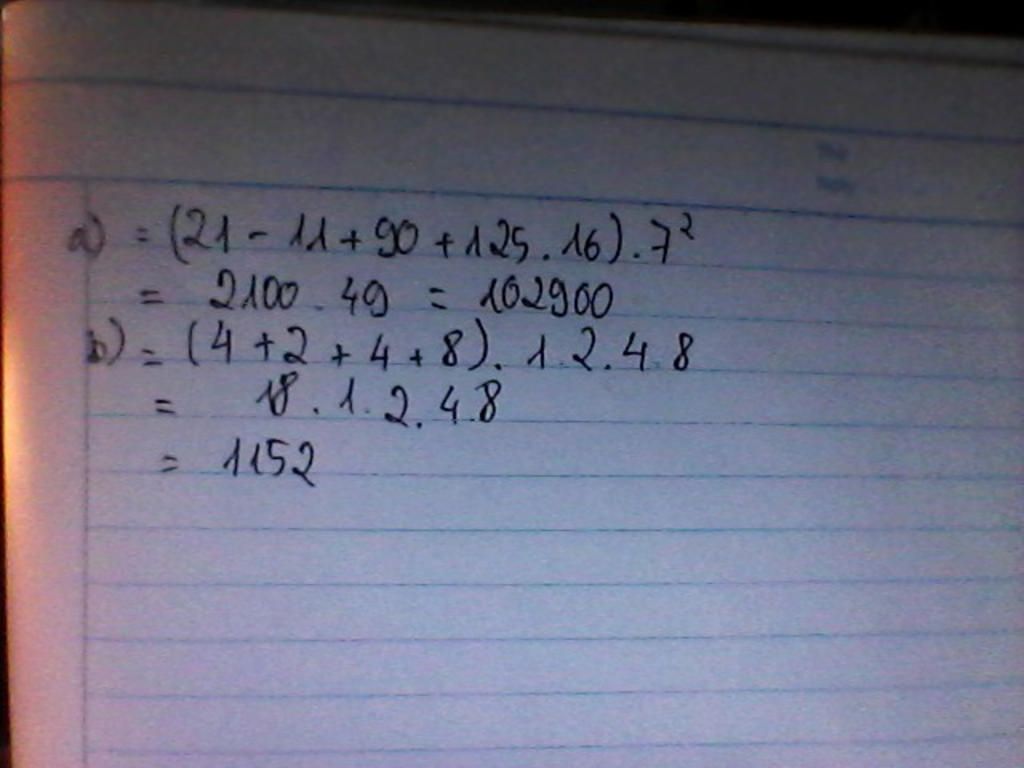 a) = (21 - 11 + 90 + 125 . 16) . 7²
= 2100 . 49 = 102900
b) = (4 + 2 + 4 + 8) . 1 . 2 . 4 . 8
= 18 . 1 . 2 . 4 . 8
= 1152